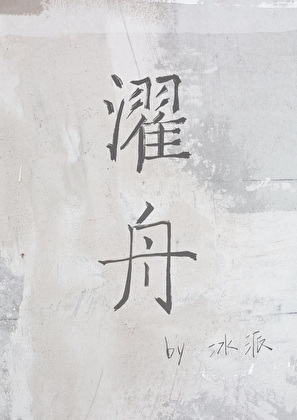 濯
舟
by 冰派